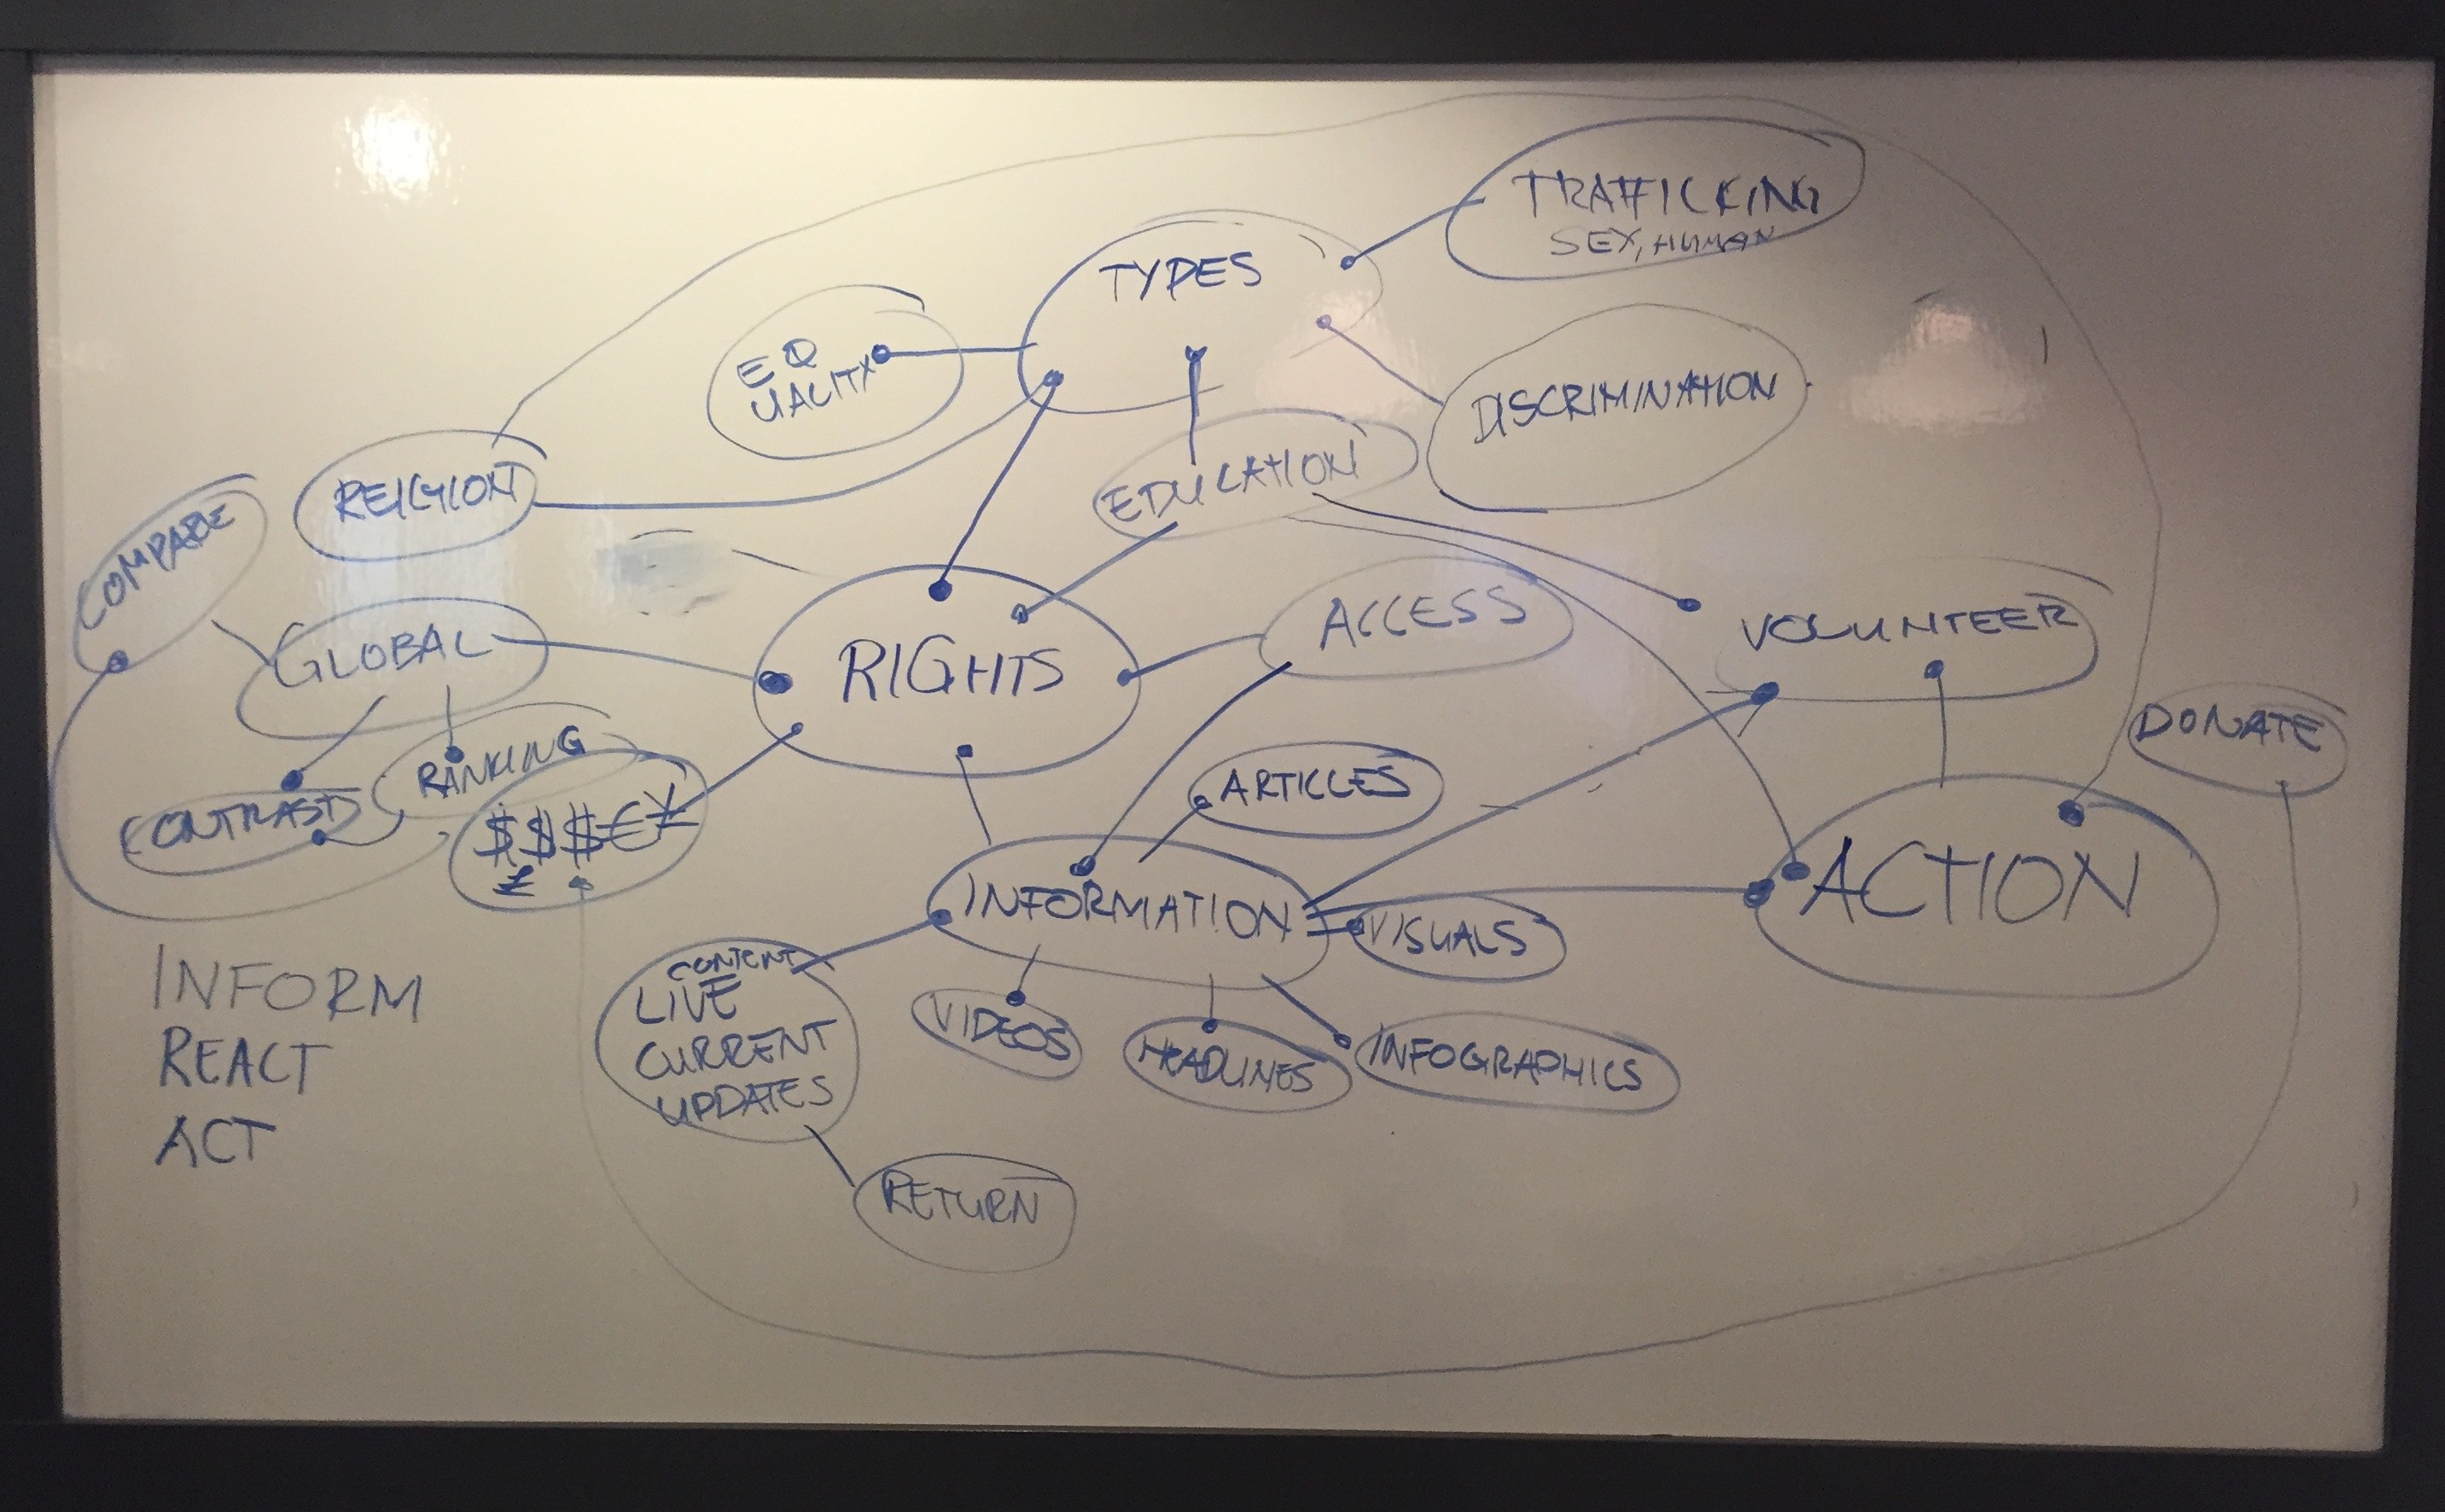 TRAFFICKING
SEX, HUMAN
TYPES
EQ
UALITY
DISCRIMINATION
RELIGION
EDUCATION
COMPARE
GLOBAL
RIGHTS
ACCESS
VOLUNTEER
DONATE
RANKING
CONTRAST
$$$€¥
£
ARTICLES
INFORMATION
VISUALS
ACTION
CONTENT
LIVE
CURRENT
UPDATES
VIDEOS
HEADLINES
INFOGRAPHICS
RETURN
INFORM
REACT
ACT